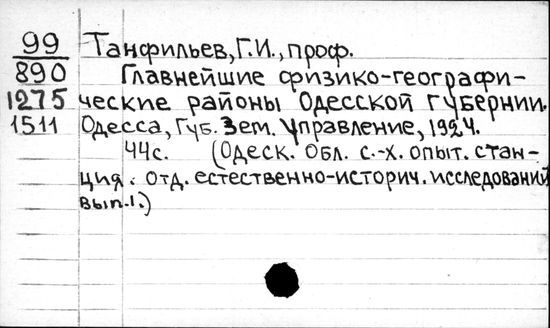 99
890
1275
1511
Танфильев, Г.И., проф.
Главнейшие физико-географи-
ческие районы Одесской губернии.
Одесса, Губ. Зем. Управление, 1924.
44с. (Одеск. Обл. с.-х. опыт. стан-
ция. Отд. естественно-историч. исследований
вып.1.)